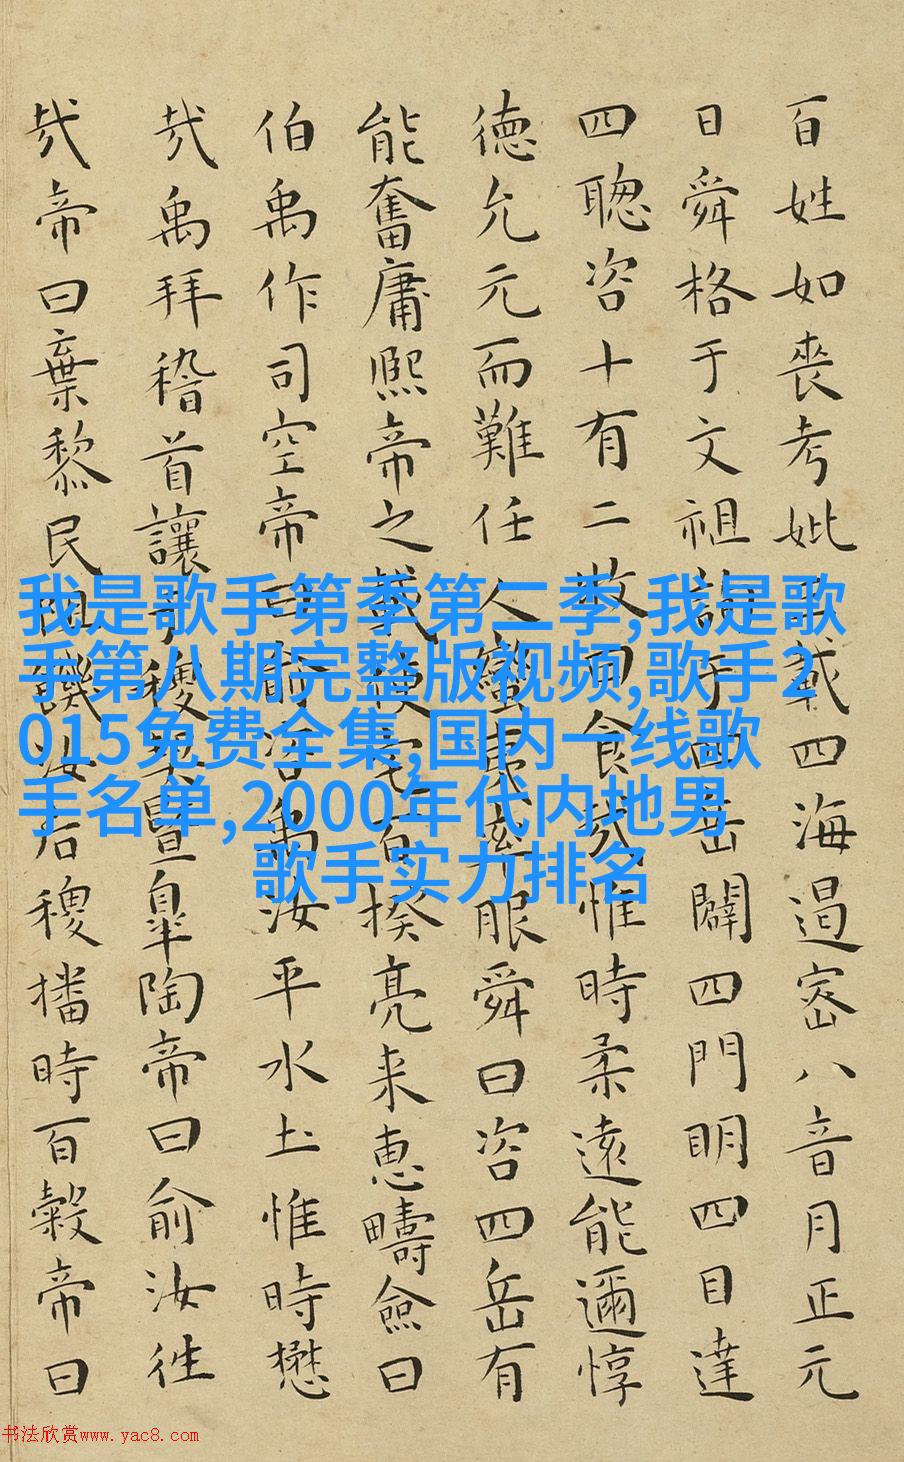 百姓如喪考妣三載四海遏密八音月正元
日舜格于文祖詢于四岳闢四門明四目達
四聰咨十有二牧曰食哉惟時柔遠能邇惇
德允元而難任人蠻夷率服舜曰咨四岳有
能奮庸熙帝之載使宅百揆亮采惠疇僉曰
伯禹作司空帝曰俞咨禹汝平水土惟時懋
哉禹拜稽首讓于稷契暨皋陶帝曰俞汝往
哉帝曰棄黎民阻饑汝后稷播時百穀帝曰
我是歌手第季第二季,我是歌
手第八期完整版视频,歌手2
015免费全集,国内一线歌
手名单,2000年代内地男
歌手实力排名
书法欣赏www.yac8.com